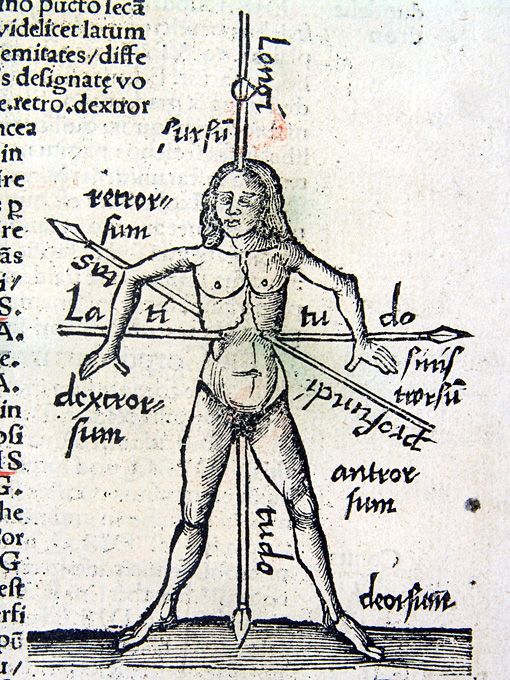 ino pūcto secā
videlicet latum
semitates/diffe
s designatę vo
e.retro.dextror
ncea
in
ire
s p̱
ire
ās
i/
S.
A.
e.
A.
in
osi
IS
G.
he
Cor
G
est
ersi
pū
u/
Longi
sursū
retror⸗
sum
tas
La ti tu do
sinis
trorsū
profundi
dextror⸗
sum
antror
sum
tudo
deorsum